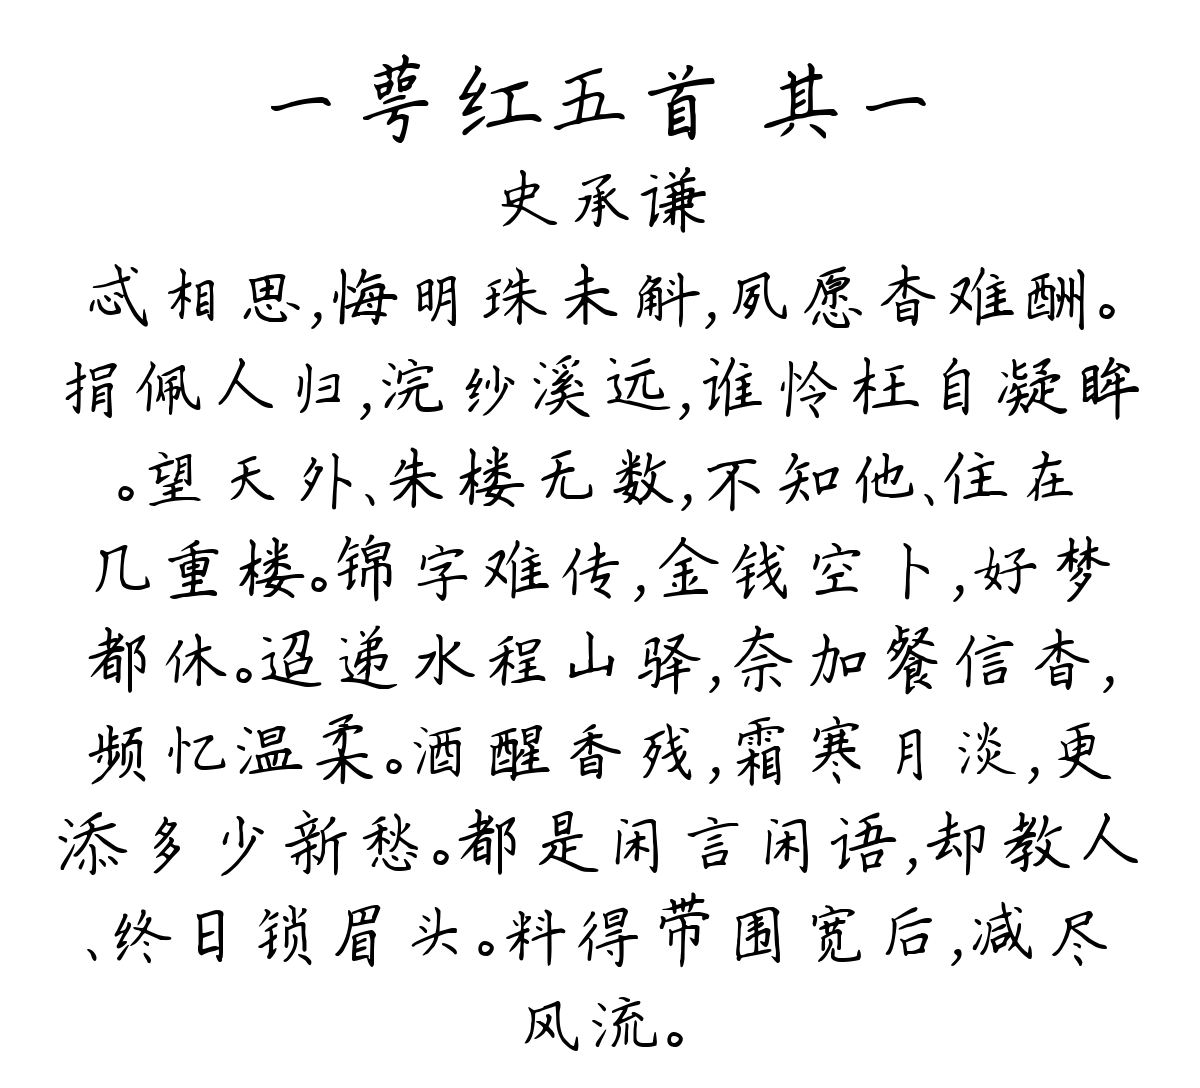 一萼红五首 其一
史承谦
忒相思,悔明珠未斛,夙愿杳难酬。
捐佩人归,浣纱溪远,谁怜枉自凝眸
。望天外、朱楼无数,不知他、住在
几重楼。锦字难传,金钱空卜,好梦
都休。迢递水程山驿,奈加餐信杳,
频忆温柔。酒醒香残,霜寒月淡,更
添多少新愁。都是闲言闲语,却教人
、终日锁眉头。料得带围宽后,减尽
风流。